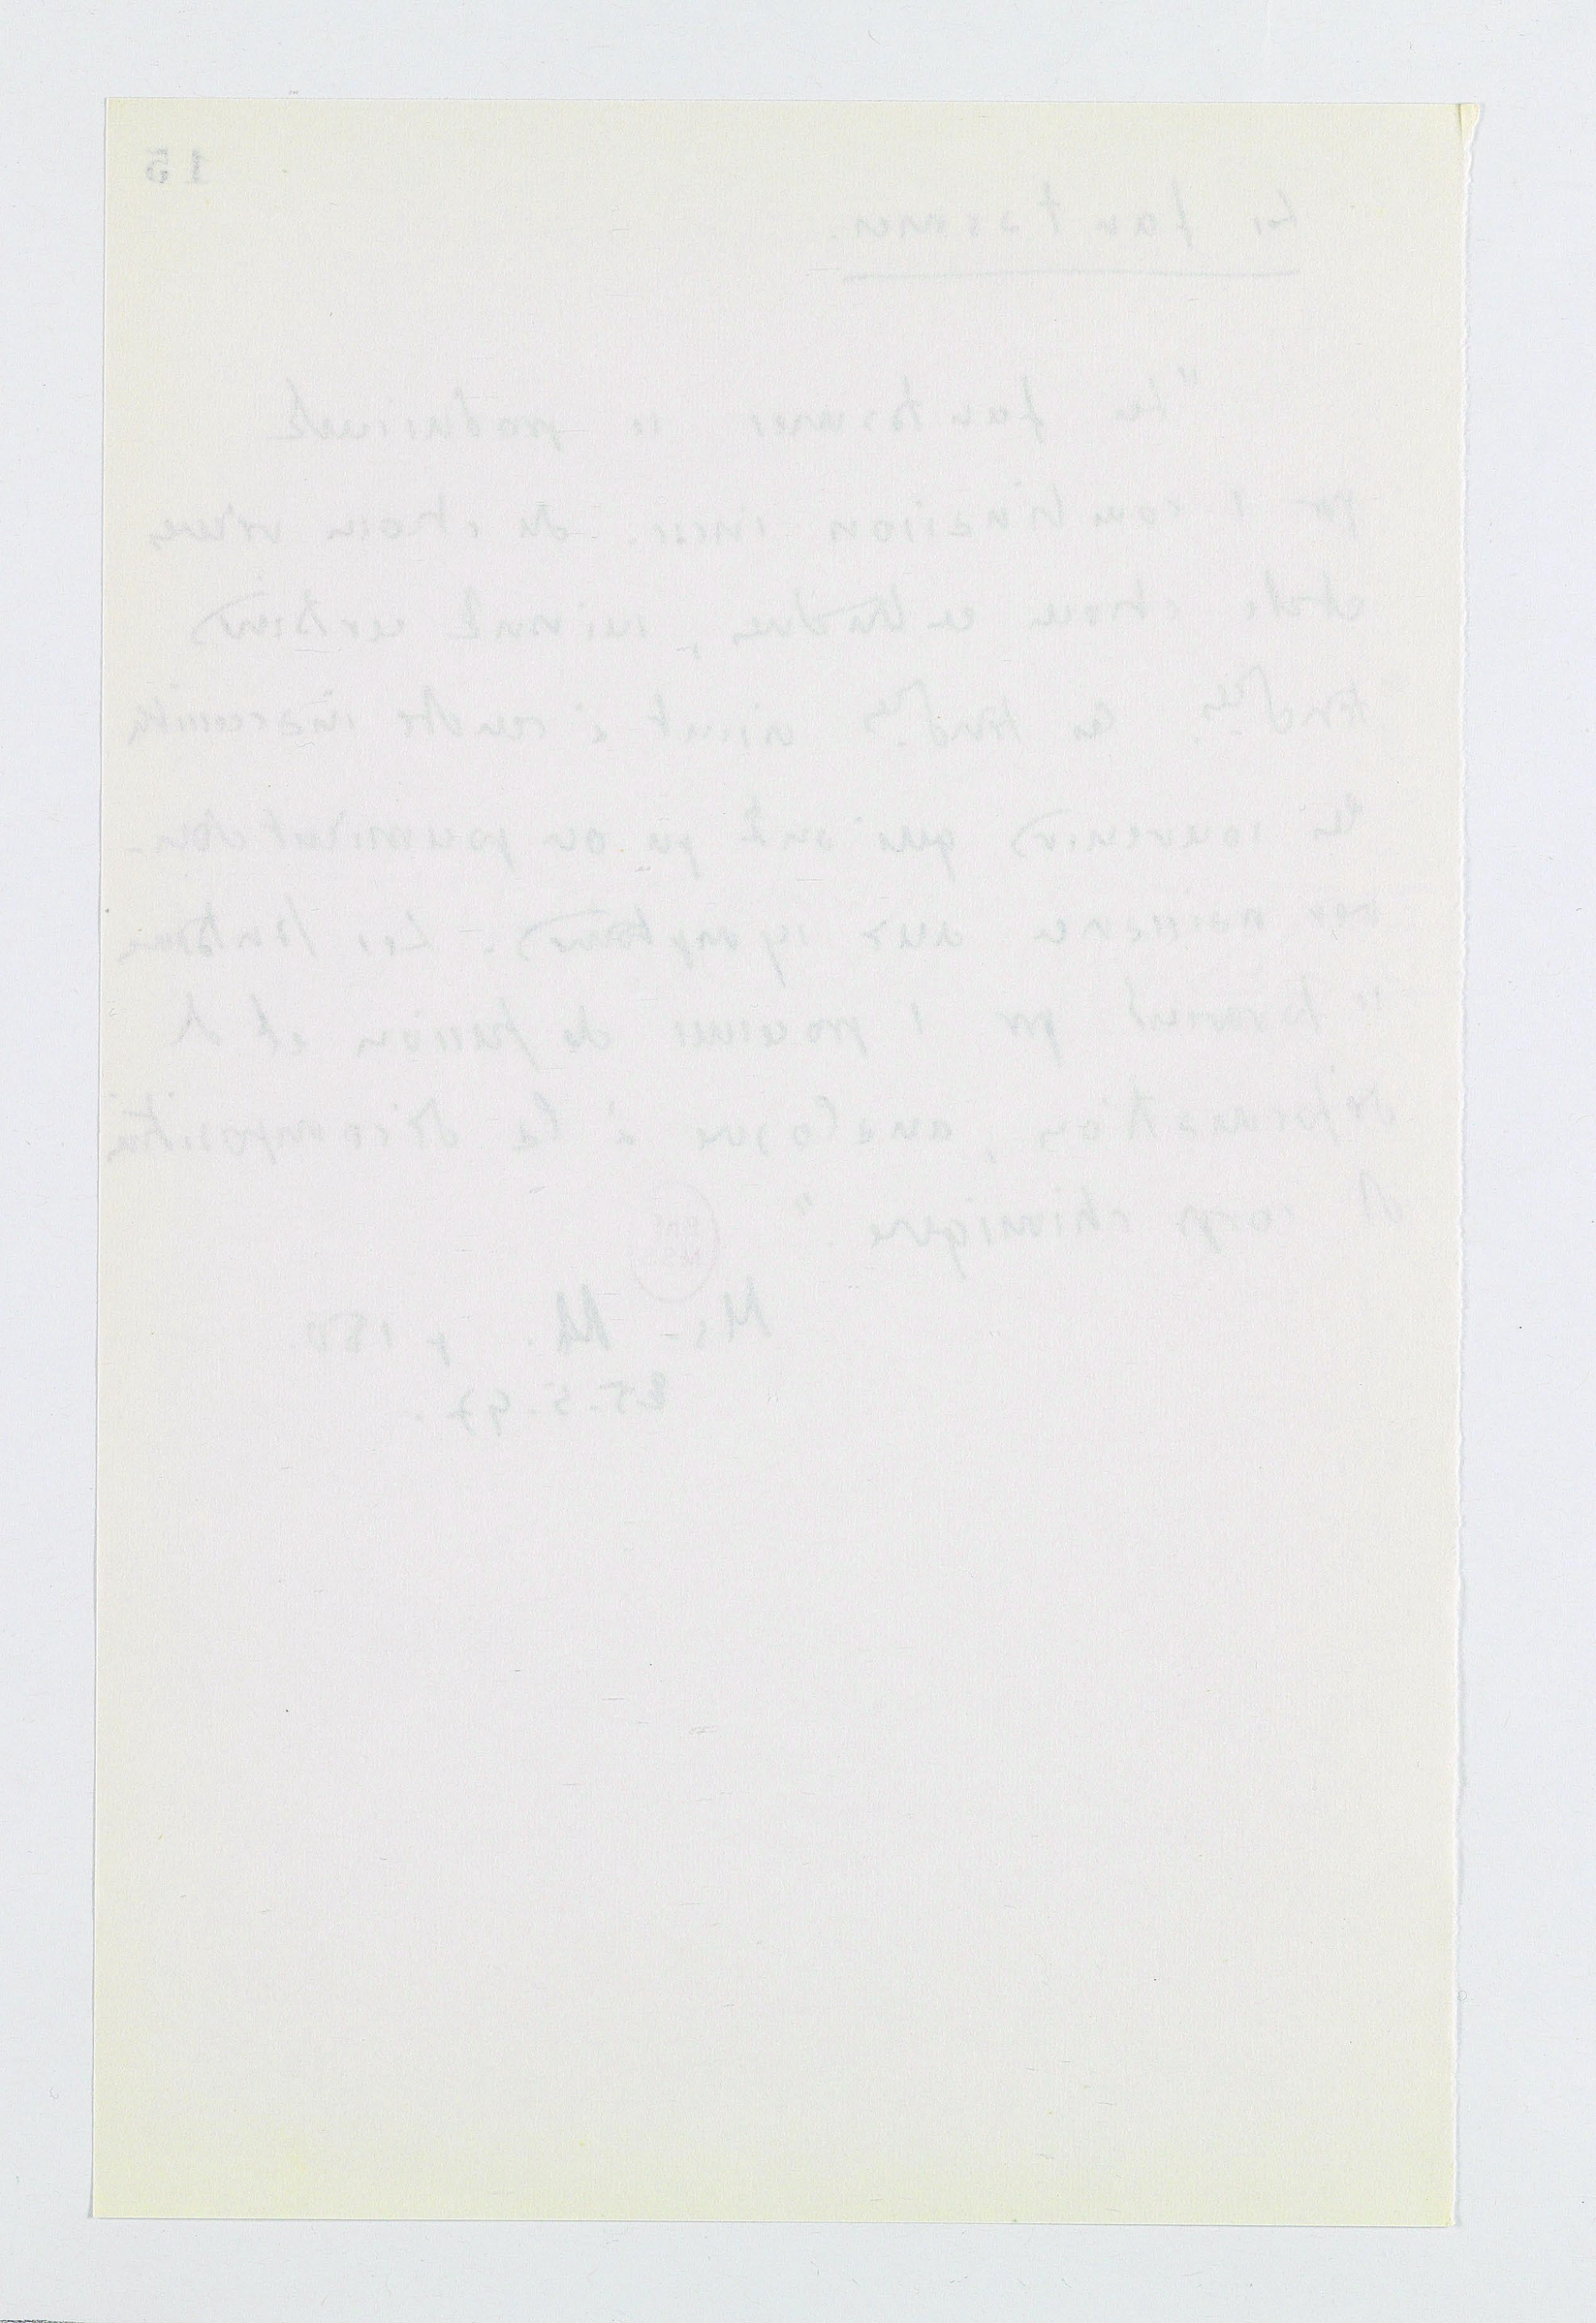 15
Les fantasmes.
"Les fantasmes se produisent
par 1 combinaison incsc. de choses vécues
et de choses entendues, suivant certaines
les souvenirs qui ont pu ou pourraient don-
ner naissance aux symptômes. Les fantasmes
se forment par 1 processus de fusion et de
déformation, analogue à la décomposition
corps chimique."
p 180
25-5-97.